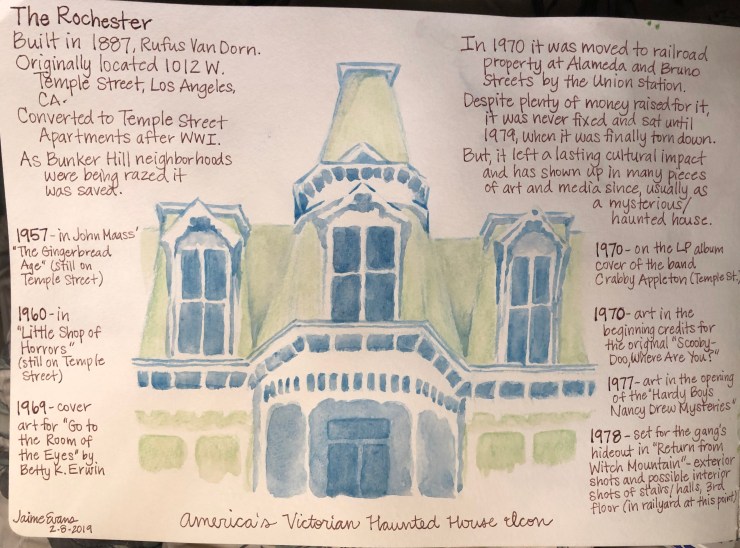 The Rochester
Built in 1887, Rufus Van Dorn.
Originally located 1012 W.
Temple Street, Los Angeles,
CA.
Converted to Temple Street
Apartments after WWI.
As Bunker Hill neighborhoods
were being razed it
was saved.
In 1970 it was moved to railroad
property at Alameda and Bruno
Streets by the Union Station.
Despite plenty of money raised for it,
it was never fixed and sat until
1979, when it was finally torn down.
But, it left a lasting cultural impact
and has shown up in many pieces
of art and media since, usually as
a mysterious/
haunted house.
1957 - in John Maass'
"The Gingerbread
Age" (still on
Temple Street)
1960 - in
"Little Shop of
Horrors"
(still on Temple
Street)
1969 - cover
art for "Go to
the Room of
the Eyes" by
Betty K. Erwin
1970 - on the LP album
cover of the band
Crabby Appleton (Temple St.)
1970 - art in the
beginning credits for
the original "Scooby-
Doo, Where Are You?"
1977 - art in the opening
of the "Hardy Boys
Nancy Drew Mysteries"
1978 - set for the gang's
hideout in "Return from
Witch Mountain" - exterior
shots and possible interior
shots of stairs/halls, 3rd
floor (in railyard at this point)
Jaime Evans
2-8-2019
America's Victorian Haunted House Icon